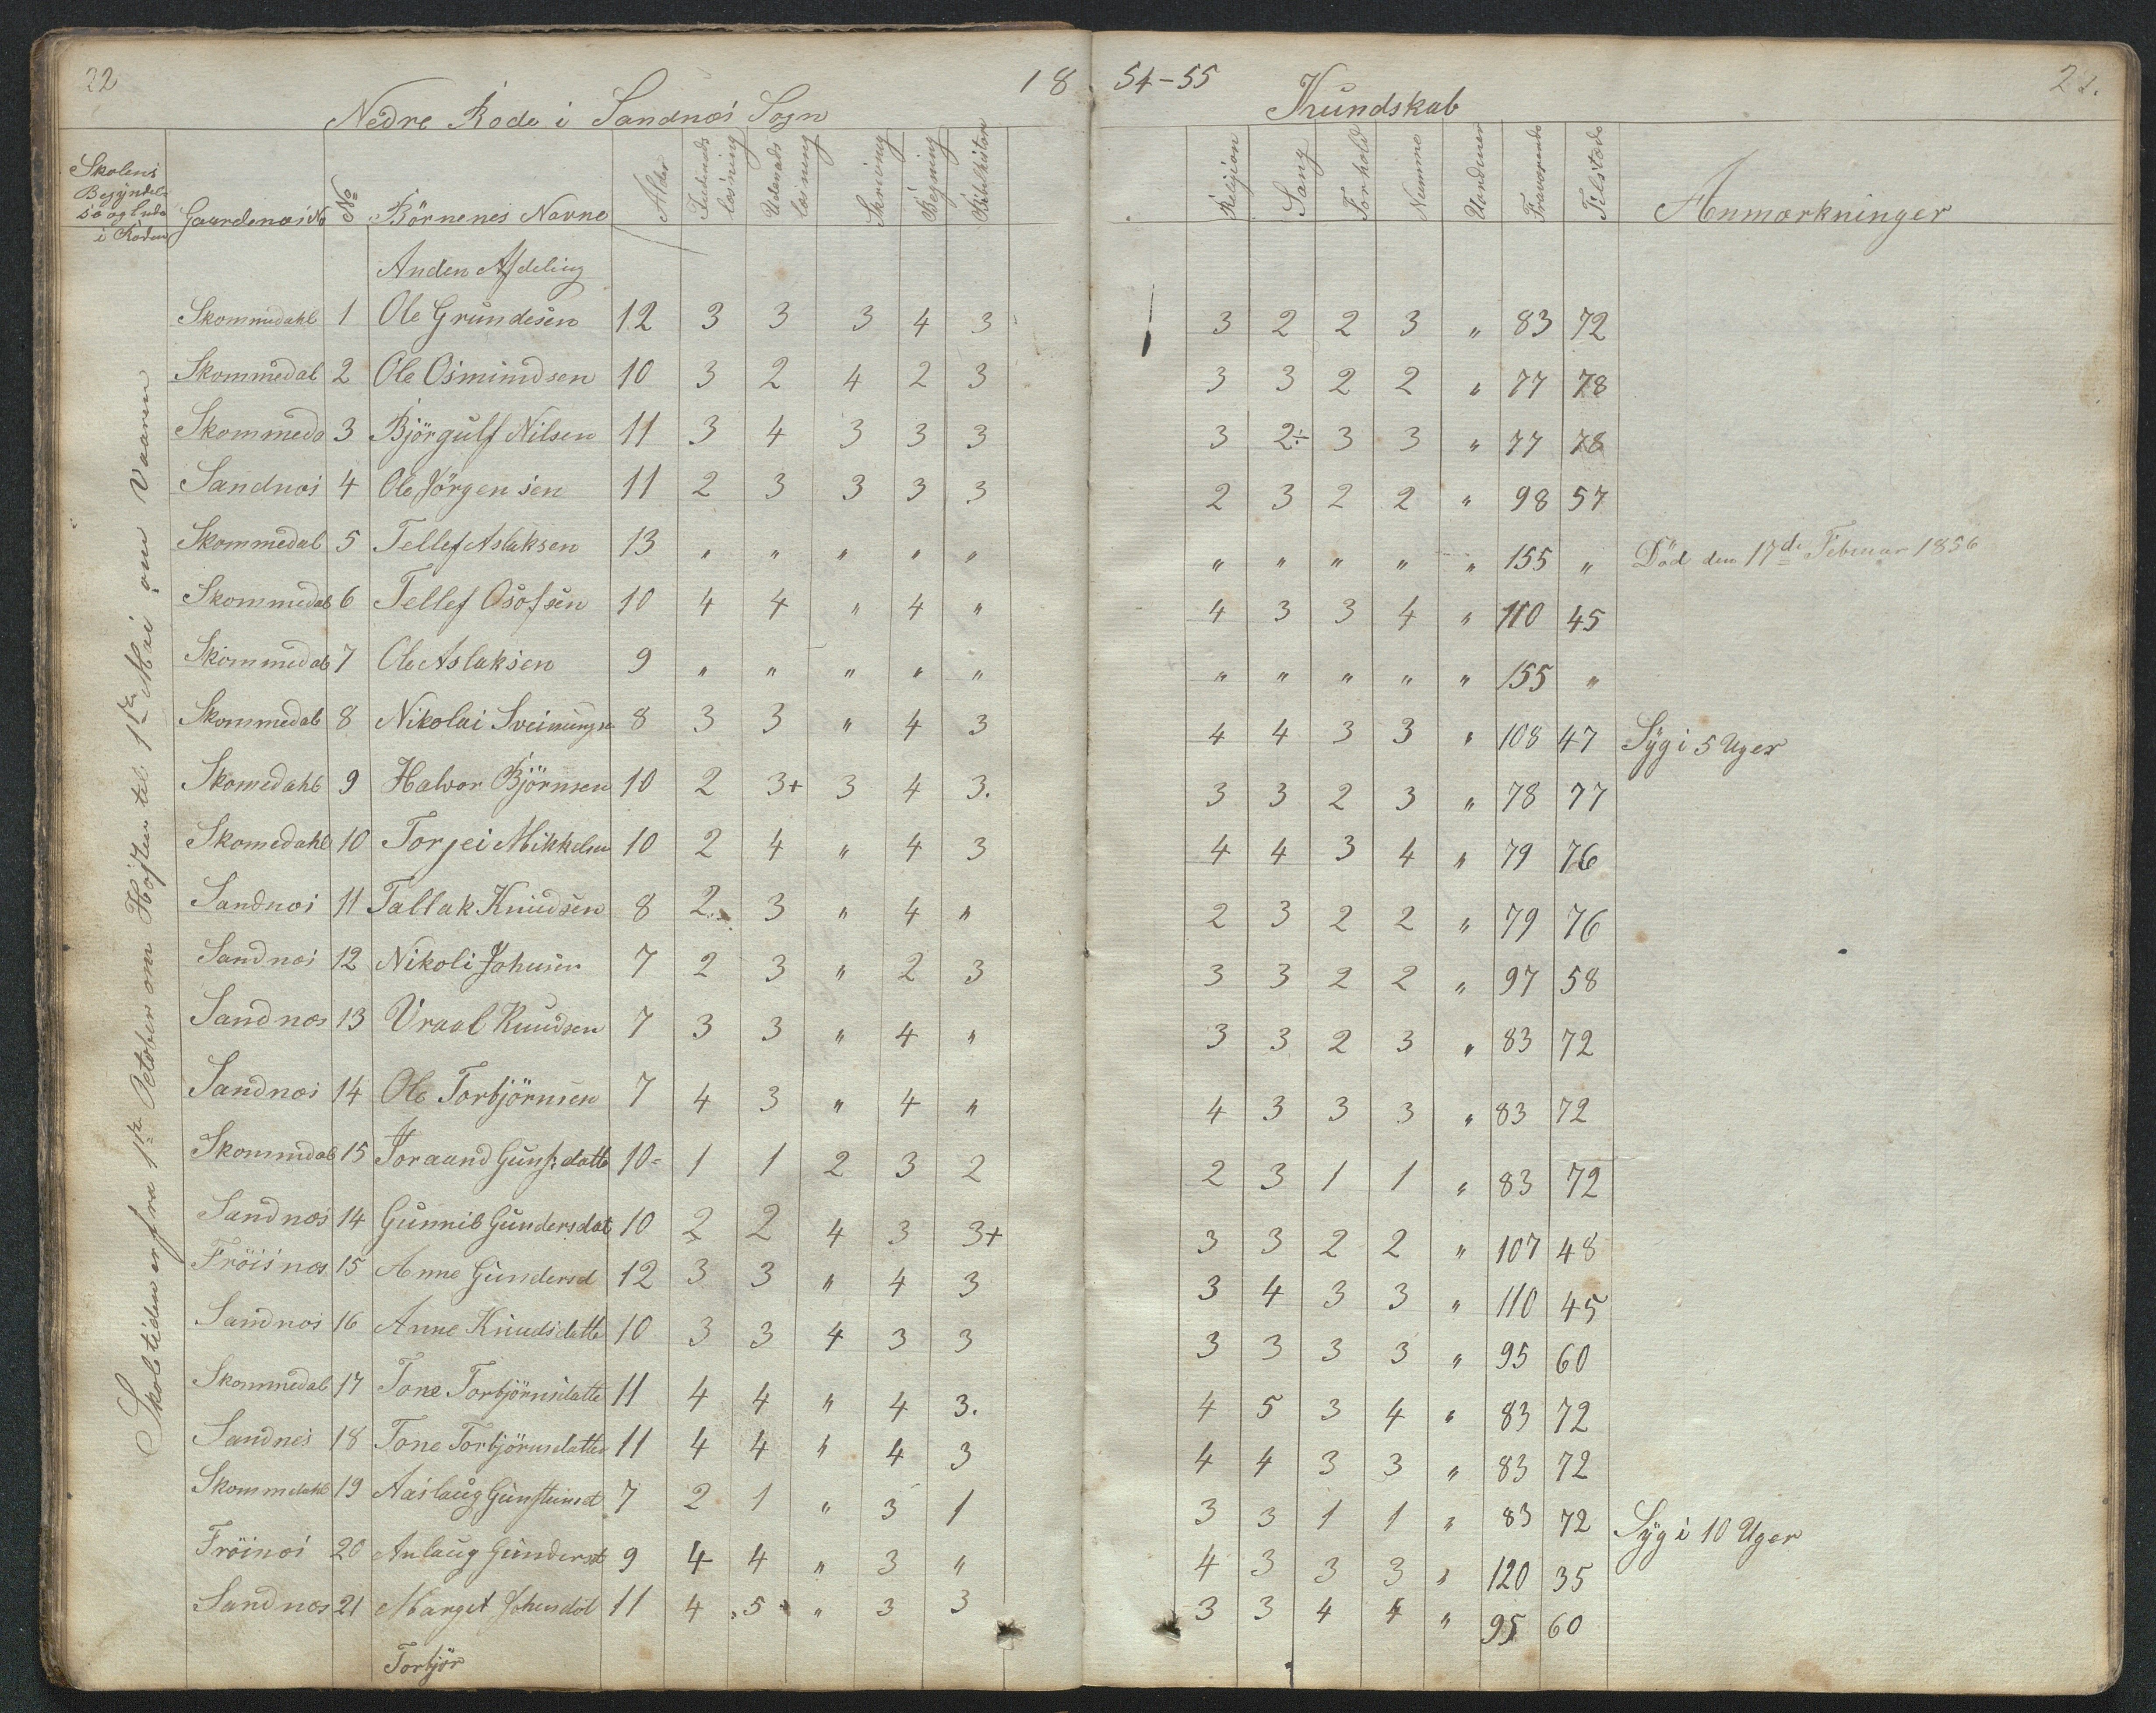 22
18 54-55
2
Nedre Rode i Sandnæs Sogn
Kundskab
Skolens Begyndelse og Ende i Roden
Gaardenes No
No
Börnenes Navne
Alder
Indenads læsning
Udenads læsning
Skrivning
Regning
Bibelhistorie
Religion
Sang
Forhold
Nemme
Uordener
Fraværende
Tilstæde
Anmærkninger
Skoletiden er fra 1ste October om Hösten til 1ste Mai om Vaaren
Anden Afdeling
Skommedahl 1 Ole Grundesen 12 3 3 3 4 3 3 2 2 3 " 83 72
Skommedal 2 Ole Osmundsen 10 3 2 4 2 3 3 3 2 2 " 77 78
Skommeda 3 Björgulf Nilsen 11 3 4 3 3 3 3 2÷ 3 3 " 77 78
Sandnæs 4 Ole Jörgensen 11 2 3 3 3 3 2 3 2 2 " 98 57
Skommedal 5 Tellef Aslaksen 13 " " " " " " " " " " 155 " Död den 17de Februar 1856
Skommedal 6 Tellef Osofsen 10 4 4 " 4 " 4 3 3 4 " 110 45
Skommedal 7 Ole Aslaksen 9 " " " " " " " " " " 155 "
Skommedal 8 Nikolai Sveinungse 8 3 3 " 4 3 4 4 3 3 " 108 47 Syg i 5 Uger
Skomedahl 9 Halvor Björnsen 10 2 3+ 3 4 3. 3 3 2 3 " 78 77
Skomedahl 10 Torjei Mikkelsen 10 2 4 " 4 3 4 4 3 4 " 79 76
Sandnæs 11 Tallak Knudsen 8 2 3 " 4 " 2 3 2 2 " 79 76
Sandnæs 12 Nikoli Johnsen 7 2 3 " 2 3 3 3 2 2 " 97 58
Sandnæs 13 Vraal Knudsen 7 3 3 " 4 " 3 3 2 3 " 83 72
Sandnæs 14 Ole Torbjörnsen 7 4 3 " 4 " 4 3 3 3 " 83 72
Skommedal 15 Joraand Gunsdatte 10 1 1 2 3 2 2 3 1 1 " 83 72
Sandnæs 14 Gunnil Gundersdat 10 2 2 4 3 3+ 3 3 2 2 " 107 48
Fröisnæs 15 Anne Gundersd 12 3 3 " 4 3 3 4 3 3 " 110 45
Sandnæs 16 Anne Knudsdatte 10 3 3 4 3 3 3 3 3 3 " 95 60
Skommedal 17 Tone Torbjörnsdatte 11 4 4 " 4 3. 4 5 3 4 " 83 72
Sandnes 18 Tone Torbjörnsdatter 11 4 4 " 4 3 4 4 3 3 " 83 72
Skommedahl 19 Aaslaug Gunsteinsd 7 2 1 " 3 1 3 3 1 1 " 83 72
Fröinæs 20 Anlaug Gundersd 9 4 4 " 3 " 4 3 3 3 " 120 35 Syg i 10 Uger
Sandnæs 21 Marget Johnsdat 11 4 5 " 3 3 3 3 4 4 " 95 60
Torbjör